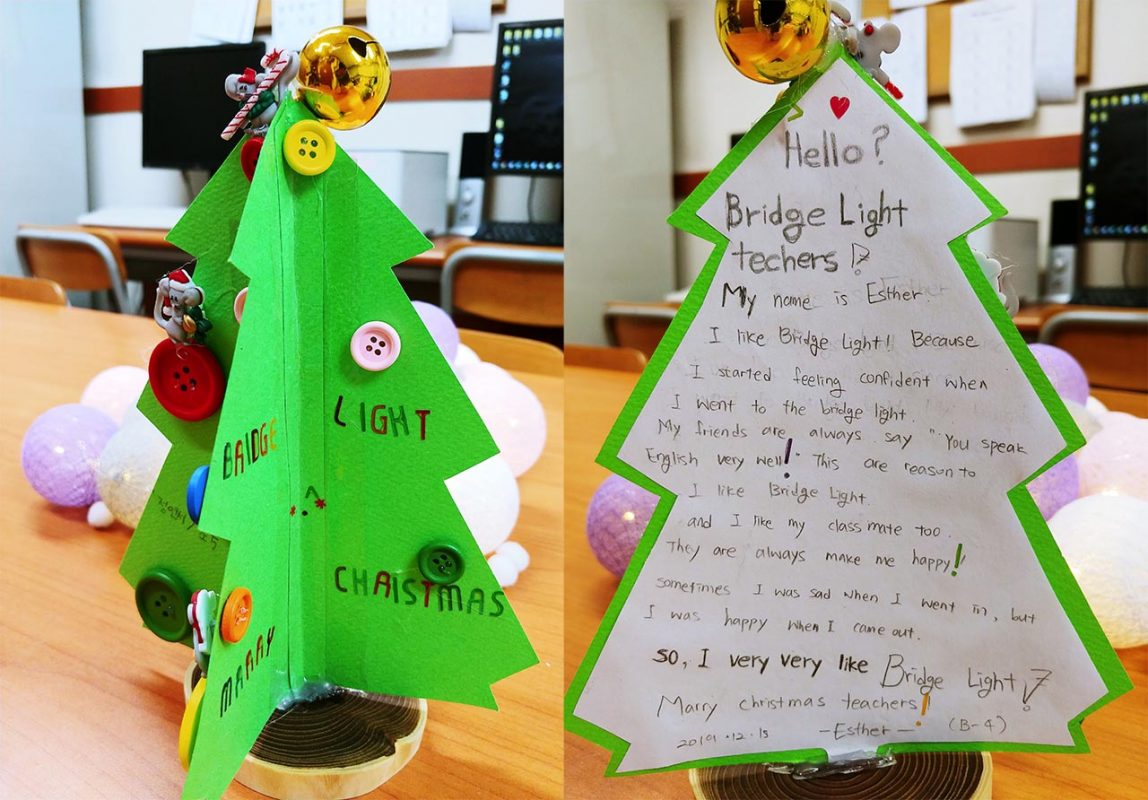 BRIDGE
LIGHT
MARRY
CHRISTMAS
Hello?
Bridge Light
techers!?
My name is Esther.
I like Bridge Light! Because
I started feeling confident when
I went to the bridge light.
My friends are always say "You speak
English very well!" This are reason to
I like Bridge Light
and I like my class mate too.
They are always make me happy!
sometimes I was sad when I went in, but
I was happy when I came out.
so, I very very like Bridge Light!
Marry christmas teachers!
2019.12.15 -Esther- (B-4)